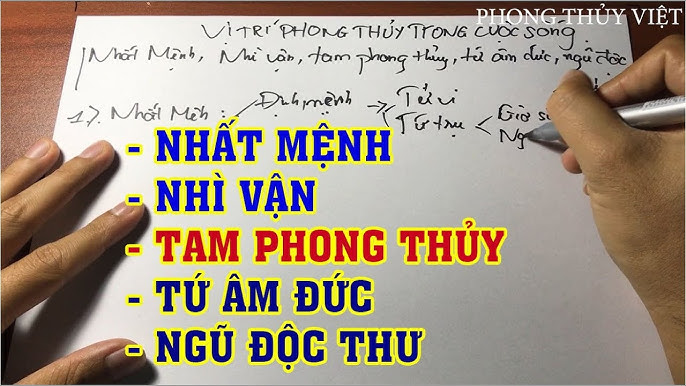 PHONG THỦY VIỆT
VỊ TRÍ PHONG THỦY TRONG CUỘC SỐNG.
Nhất Mệnh, Nhì vận, tam phong thủy, tứ âm đức, ngũ độc
1). Nhất Mệnh: Định mệnh Tử vi
Tứ trụ Giờ
Ng
- NHẤT MỆNH
- NHÌ VẬN
- TAM PHONG THỦY
- TỨ ÂM ĐỨC
- NGŨ ĐỘC THƯ